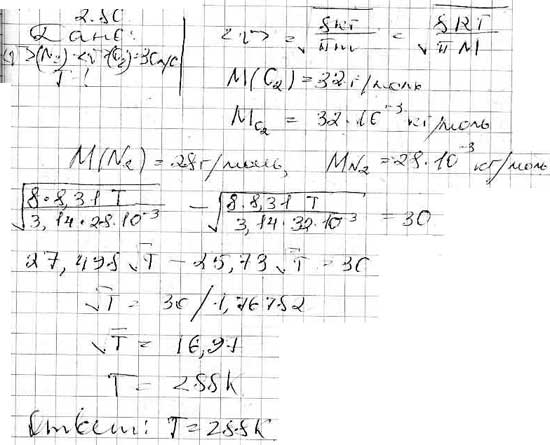 2.80
Дано:
<υ>(N₂)-<υ>(O₂)=30 м/с
T?
<υ> = √(8kT/πm) = √(8RT/πM)
M(O₂) = 32 г/моль
M_O₂ = 32·10⁻³ кг/моль
M(N₂) = 28 г/моль, M_N₂ = 28·10⁻³ кг/моль
√(8·8,31 T / 3,14·28·10⁻³) − √(8·8,31 T / 3,14·32·10⁻³) = 30
27,498 √T − 25,73 √T = 30
√T = 30 / 1,76752
√T = 16,97
T = 288 К
Ответ: T = 288 К